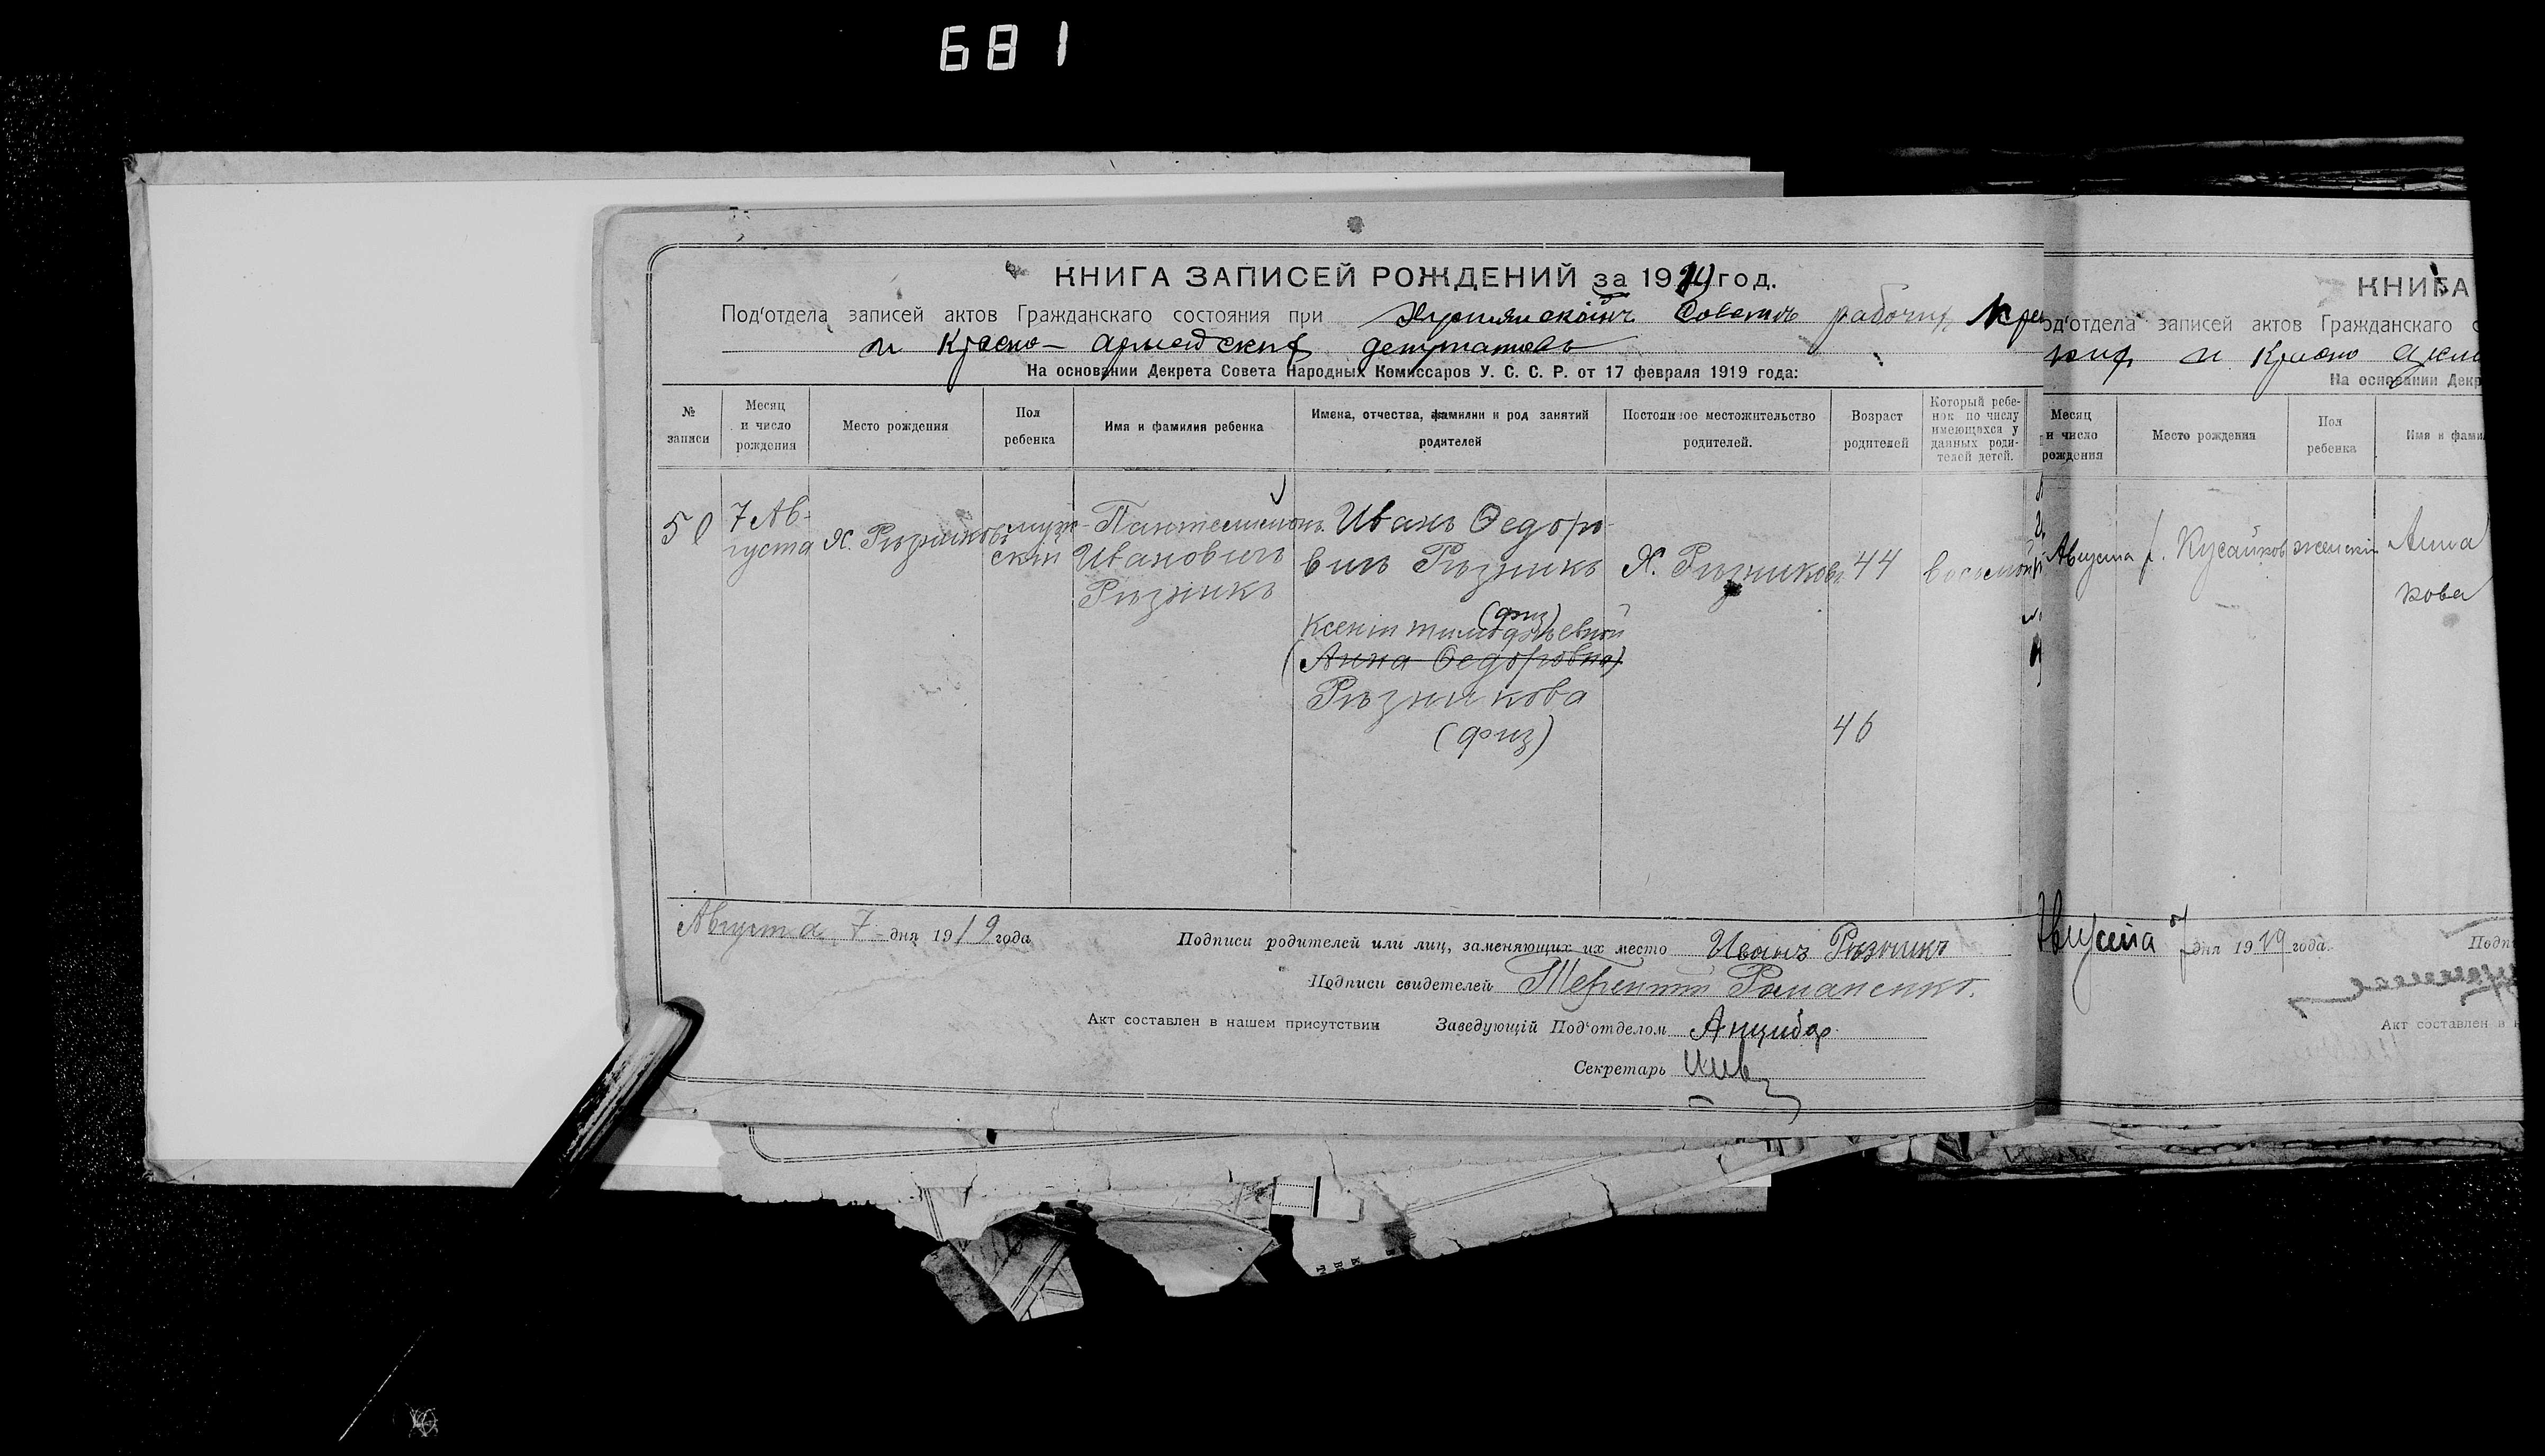 681
КНИГА ЗАПИСЕЙ РОЖДЕНИЙ за 1919 год.
Под'отдела записей актов Гражданскаго состояния при Совете рабочих, Кре
и Красно-армейских депутатовъ
На основании Декрета Совета Народных Комиссаров У. С. С. Р. от 17 февраля 1919 года:
№ записи
Месяц и число рождения
Место рождения
Пол ребенка
Имя и фамилия ребенка
Имена, отчества, фамилии и род занятий родителей
Постоянное местожительство родителей.
Возраст родителей
Который ребенок по числу имеющихся у данных родителей детей.
50
7 Ав-
густа
Х. Рѣзниковъ
муж-
скій
Пантелимонъ
Ивановичъ
Рѣзникъ
Иванъ Ѳедоро-
вичъ Рѣзникъ
(физ)
Ксенія Тимофѣевной
(Анна Ѳедоровна)
Рѣзникова
(физ)
Х. Рѣзниковъ
44
46
восьмой
Августа 7 дня 1919 года
Подписи родителей или лиц, заменяющих их место Иванъ Рѣзникъ
Подписи свидетелей Терентій Романенко.
Акт составлен в нашем присутствии
Заведующій Под'отделом Анцибор
Секретарь
КНИГА
од'отдела записей актов Гражданскаго с
ких и Красно арме
На основании Декр
Месяц и число рождения
Место рождения
Пол ребенка
Имя и фами
Августа
х. Кусайков
женскій
Анна
кова
Августа 7 дня 1919 года.
Подп
Акт составлен в н